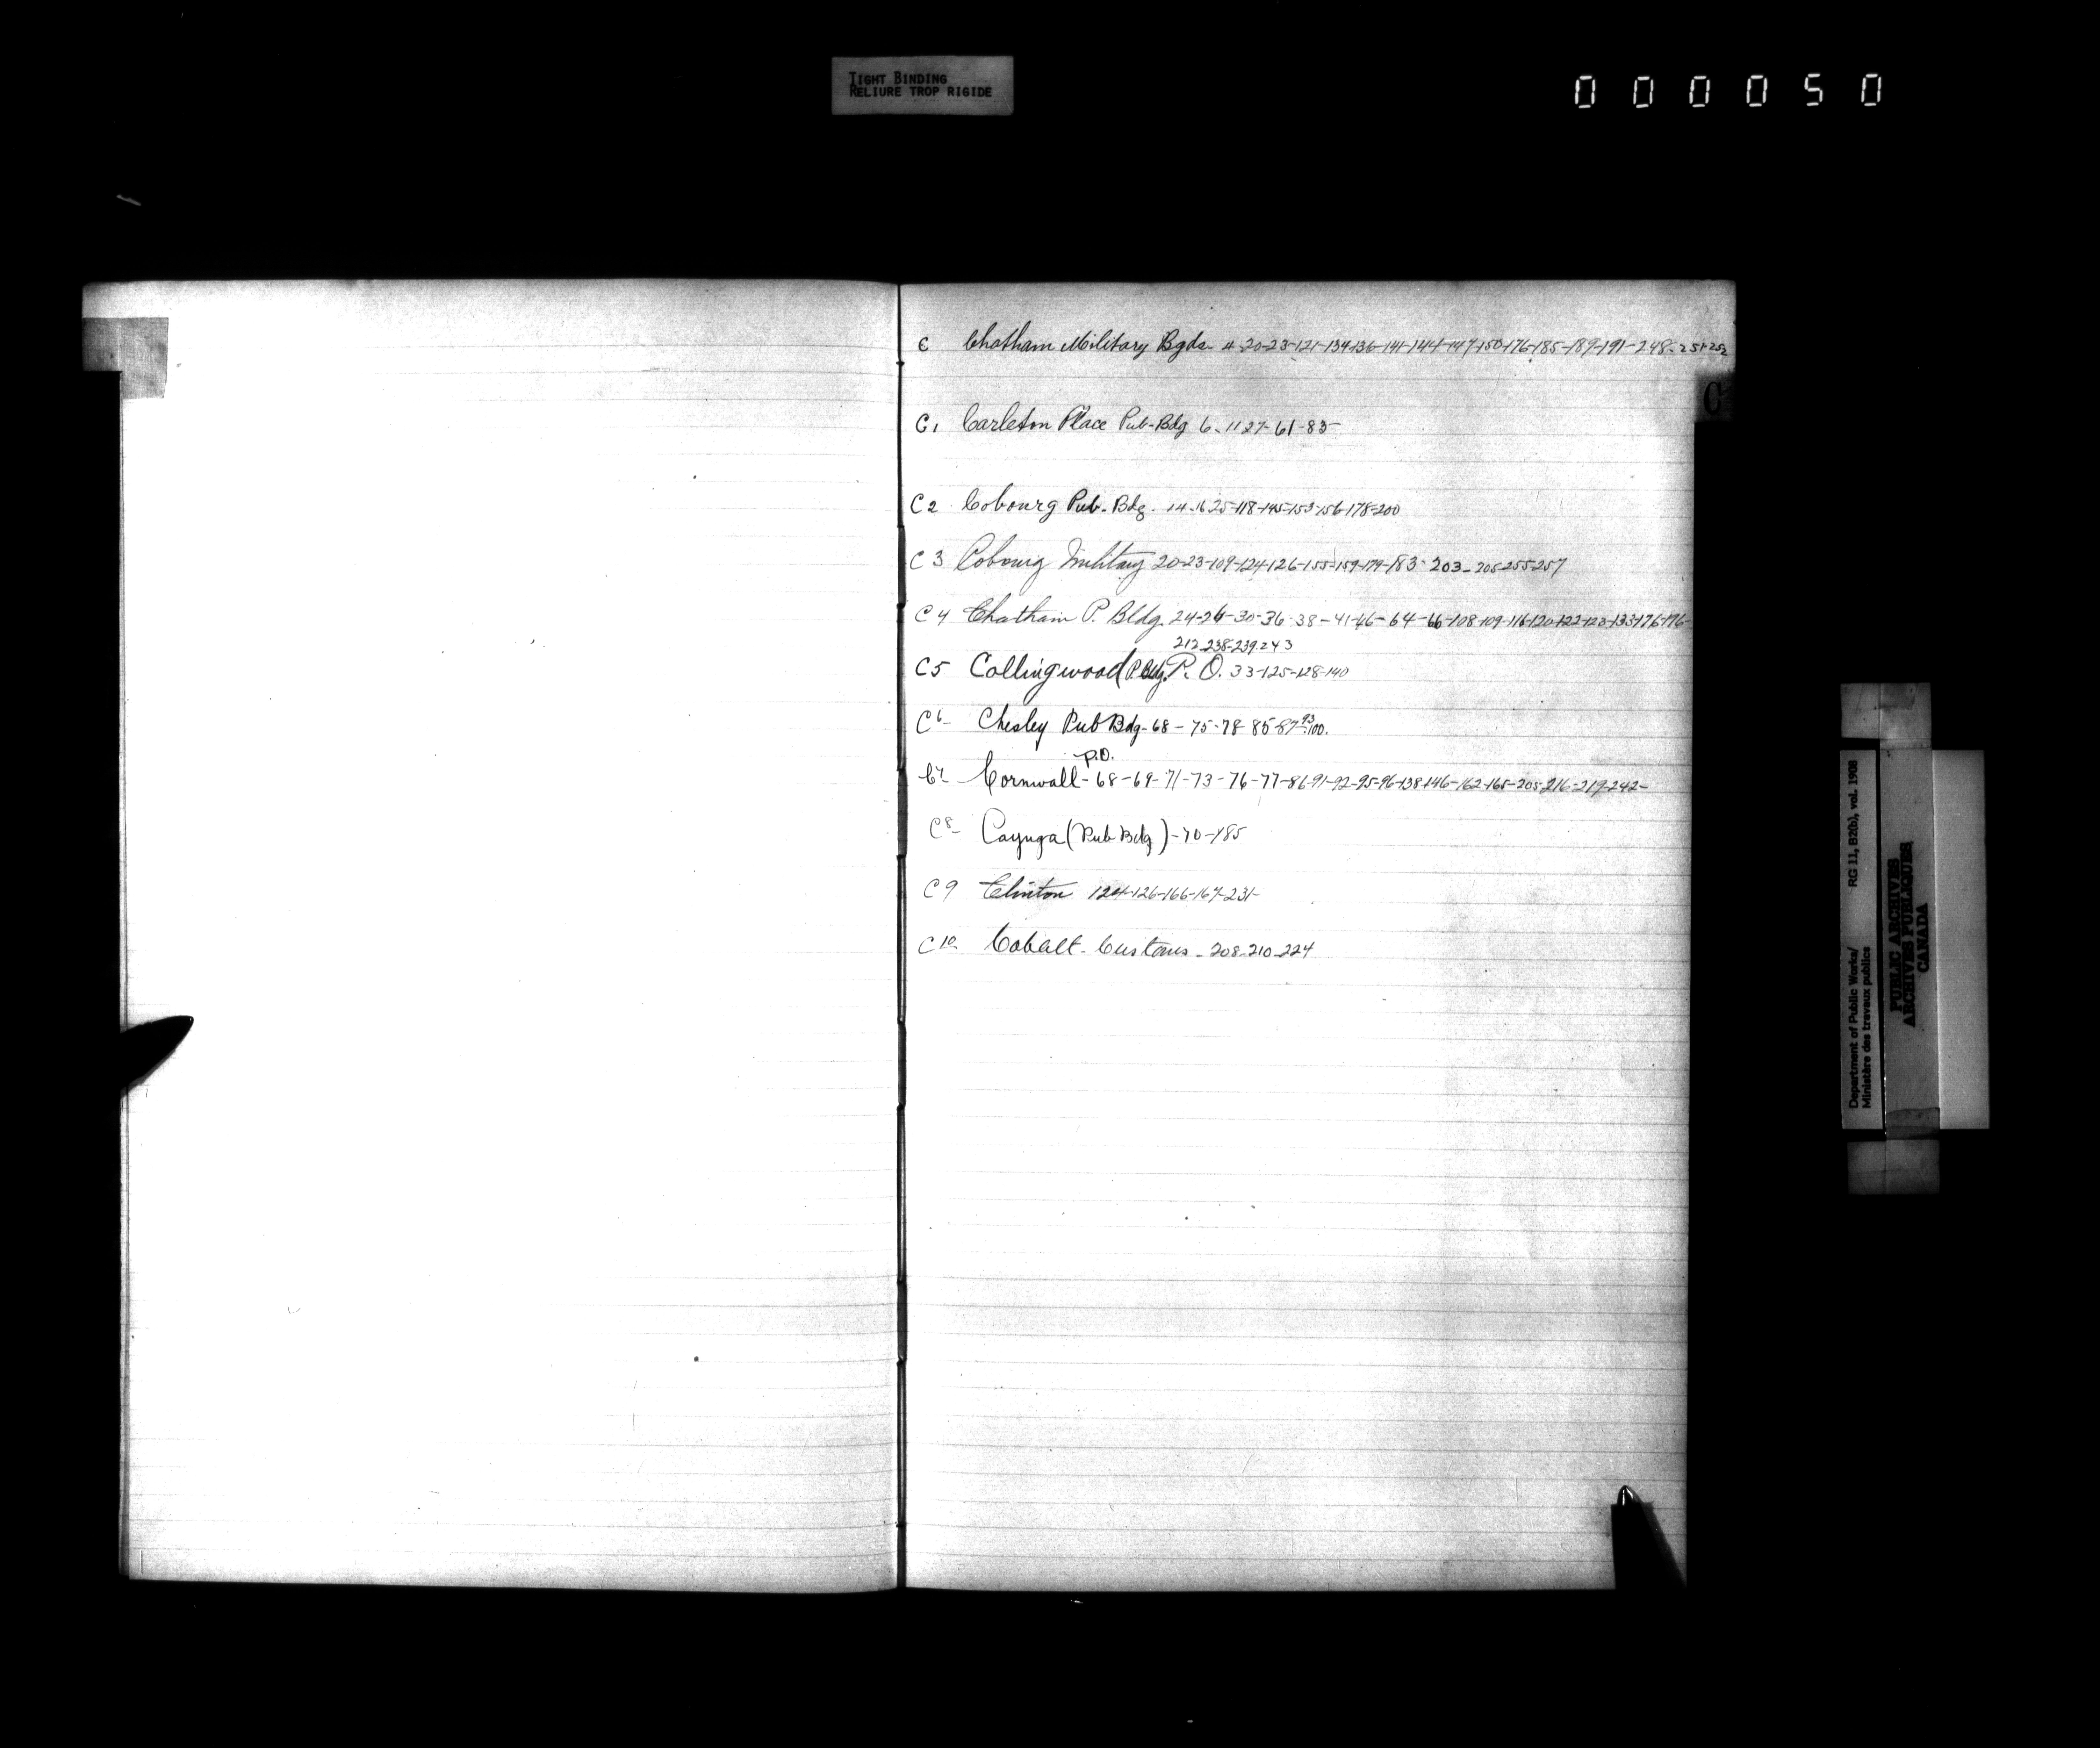 TIGHT BINDING
RELIURE TROP RIGIDE
000050
C Chatham Military Bgds - 4-20-23-121-134-136-141-144-147-150-176-185-189-191-248-251-252
C
C1 Carleton Place Pub-Bdg 6-11 27-61-83-
C2 Cobourg Pub. Bdg. 14-16 25-118-145-153-156-178-200
C3 Cobourg Military 20-23-109-124-126-155-159-179-183-203-205-255-257
C4 Chatham P. Bldg. 24-26-30-36-38-41-46-64-66-108-109-116-120-122-123-133-176-176-
212-238-239-243
C5 Collingwood (P. Bdg. P. O. 33-125-128-140
C6- Chesley Pub Bdg-68-75-78-85-87-93-100.
P.O.
C7- Cornwall-68-69-71-73-76-77-86-91-92-95-96-138-146-162-165-205-216-219-242-
C8- Cayuga (Pub Bdg)-70-185
C9 Clinton 124-126-166-167-231-
C10- Cobalt-Customs-208-210-224
Department of Public Works/ RG 11, B2(b), vol. 1908
Ministère des travaux publics
PUBLIC ARCHIVES
ARCHIVES PUBLIQUES
CANADA